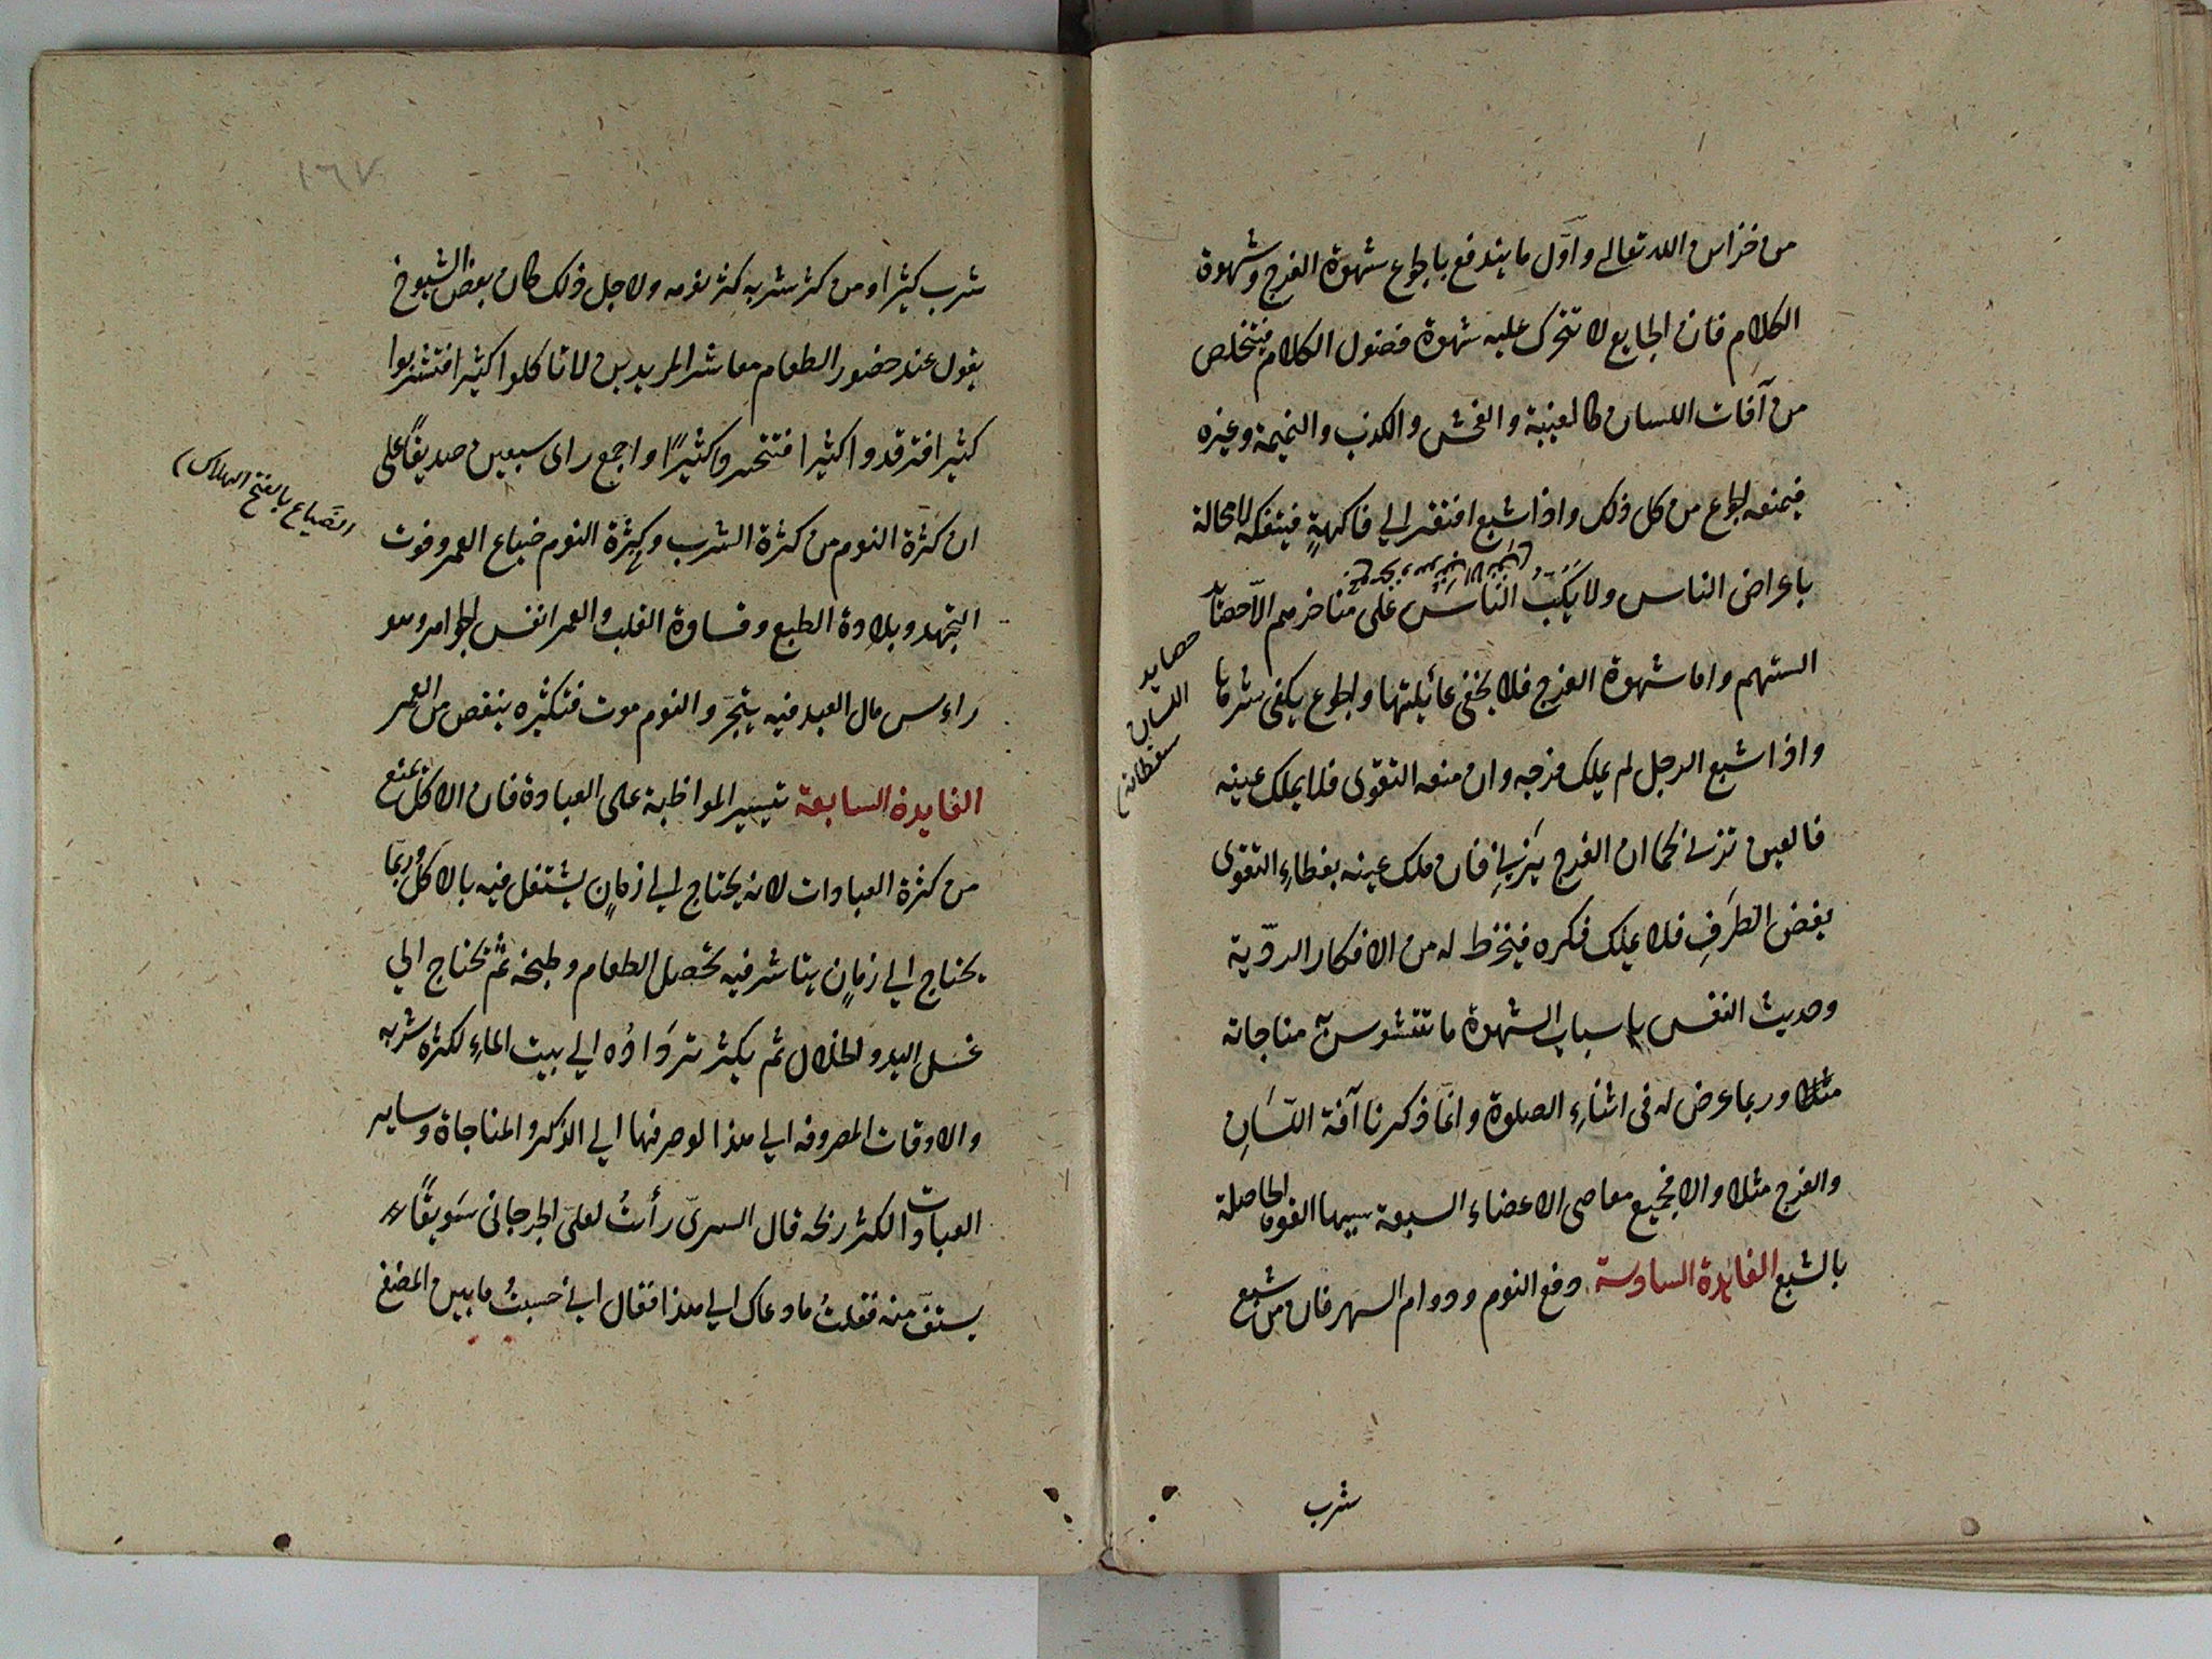 من خزاين الله تعالى واول ما يندفع بالجوع شهوة الفرج وشهوة
الكلام فان الجايع لا تتحرك عليه شهوة فضول الكلام فيتخلص
من آفات اللسان كالغيبة والفحش والكذب والنميمة وغيره
فيمنعه الجوع من كل ذلك واذا شبع افتقر الي فاكهةٍ فيتفكه لا محالة
باعراض الناس ولا يَكُبّ الناس على مناخرهم الّا حصائد
السنتهم واما شهوة الفرج فلا يخفى غائلتها والجوع يكفى شرها
واذا شبع الرجل لم يملك فرجه وان منعه التقوى فلا يملك عينه
فالعين تزني كما ان الفرج يَزني فان ملك عينه بغطاءِ التقوى
بغض الطَرفِ فلا يملك فكره فيخطر له من الافكار الردّية
وحديث النفس باسباب الشهوة ما تتشوس به مناجاته
مثلا وربما عرض له فى اثناءِ الصلوة وانّما ذكرنا آفة اللّسَانِ
والفرج مثلا والا فجميع معاصى الاعضاء السبعة سببها القوة الحاصلة
بالشبع الفايدة السادسة دفع النوم ودوام السهر فان من شبع
حصايد
اللسان
سقطاته
شرب
١٦٧
شرب كثيرا ومن كثر شربه كثر نومه ولاجل ذلك كان بعض الشيوخ
يقول عند حضور الطعام معاشر المريدين لا تاكلوا كثيرا فتشربوا
كثيرا فترقدوا كثيرا فتتحسروا كثيرًا واجمع راى سبعين صديقًا على
ان كثرة النوم من كثرة الشرب وكثرة النوم ضياع العمر وفوت
التهجد وبلادة الطبع وقساوة القلب والعمر انفس الجواهر وهو
راءس مال العبد فيه يتّجر والنوم موت فتكثيره ينقص من العمر
الفايدة السابعة تيسير المواظبة على العبادة فان الاكل يمنع
من كثرة العبادات لانه يحتاج الي زمانٍ يشتغل فيه بالاكل وربّما
يحتاج الي زمانٍ يباشر فيه تحصل الطعام وطبخه ثم يحتاج الي
غسل اليد والخلال ثم يكثر تردادُه الي بيت الماءِ لكثره شربه
والاوقات المصروفه الي هذا لو صرفها الي الذكر والمناجاة وساير
العبادات لكثر ربحه قال السرىّ رأيتُ لعلىّ الجرجانى سَويقًاء
يستفّ منه فقلتُ ما دعاك الي هذا فقال اني حسبتُ ما بين المضغ
الضَياع بالفتح الهلاك